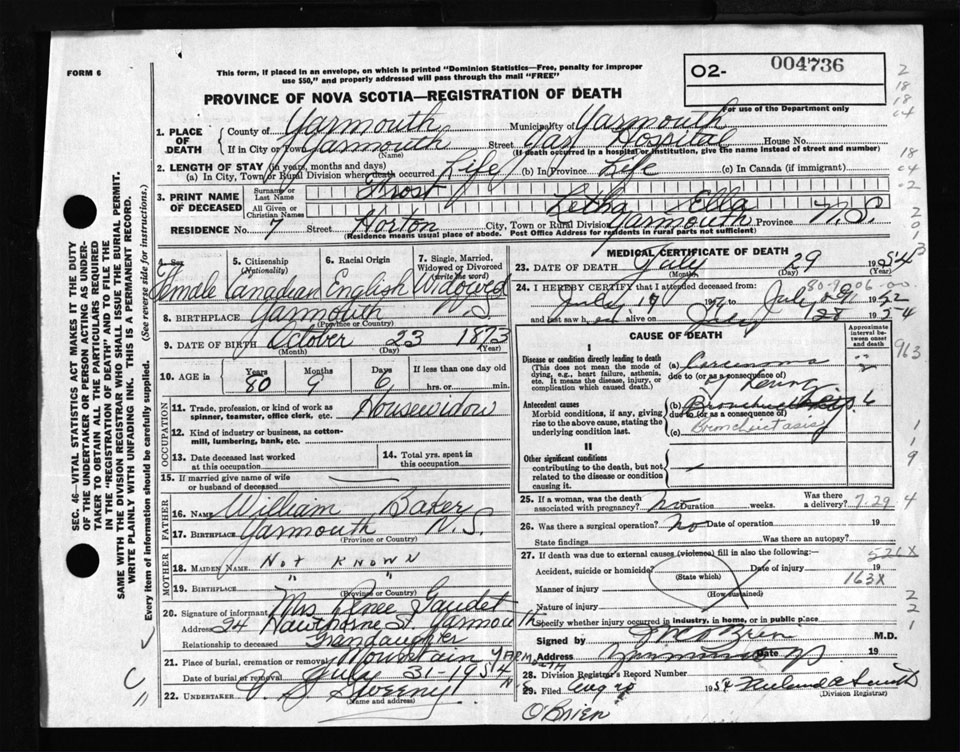 FORM 6
This form, if placed in an envelope, on which is printed "Dominion Statistics—Free, penalty for improper
use $50," and properly addressed will pass through the mail "FREE"
02- 004736
PROVINCE OF NOVA SCOTIA—REGISTRATION OF DEATH
For use of the Department only
1. PLACE OF DEATH
County of Yarmouth Municipality of Yarmouth
If in City or Town Yarmouth Street Yar Hospital House No.
(Name) (If death occurred in a hospital or institution, give the name instead of street and number)
2. LENGTH OF STAY (in years, months and days)
(a) In City, Town or Rural Division where death occurred Life (b) In Province Life (c) In Canada (if immigrant)
3. PRINT NAME OF DECEASED
Surname or Last Name Frost
All Given or Christian Names Letha Ella
RESIDENCE No. 7 Street Horton City, Town or Rural Division Yarmouth Province N.S.
(Residence means usual place of abode. Post Office Address for residents in rural parts not sufficient)
4. Sex Female
5. Citizenship (Nationality) Canadian
6. Racial Origin English
7. Single, Married, Widowed or Divorced (write the word) Widowed
8. BIRTHPLACE Yarmouth N S
(Province or Country)
9. DATE OF BIRTH October 23 1873
(Month) (Day) (Year)
10. AGE in Years 80 Months 9 Days 6 If less than one day
hrs. or min.
OCCUPATION
11. Trade, profession, or kind of work as spinner, teamster, office clerk, etc. Housewidow
12. Kind of industry or business, as cotton-mill, lumbering, bank, etc.
13. Date deceased last worked at this occupation
14. Total yrs. spent in this occupation
15. If married give name of wife or husband of deceased
FATHER
16. NAME William Baker
17. BIRTHPLACE Yarmouth N.S.
(Province or Country)
MOTHER
18. MAIDEN NAME Not Known
19. BIRTHPLACE " "
(Province or Country)
20. Signature of informant Mrs Renee Gaudet
Address 24 Hawthorne St. Yarmouth
Relationship to deceased Grandaughter
21. Place of burial, cremation or removal Mountain Yarmouth
Date of burial or removal July 31-1954
22. UNDERTAKER Sweeny
(Name and address)
MEDICAL CERTIFICATE OF DEATH
23. DATE OF DEATH July 29 1954
(Month) (Day) (Year)
24. I HEREBY CERTIFY that I attended deceased from:
July 19
and last saw her alive on
CAUSE OF DEATH
Approximate interval between onset and death
I
Disease or condition directly leading to death
(This does not mean the mode of dying, e.g., heart failure, asthenia, etc. It means the disease, injury, or complication which caused death.)
(a) Carcinoma
due to (or as a consequence of)
of Lung
Antecedent causes
Morbid conditions, if any, giving rise to the above cause, stating the underlying condition last.
(b)
due to (or as a consequence of)
(c) Bronchiectasis
II
Other significant conditions
contributing to the death, but not related to the disease or condition causing it.
25. If a woman, was the death associated with pregnancy? no Duration weeks. Was there a delivery? 7.29
26. Was there surgical operation? no Date of operation 19
State findings Was there an autopsy?
27. If death was due to external causes (violence) fill in also the following:— 526X
Accident, suicide or homicide? Date of injury 19
(State which) 163X
Manner of injury
(How sustained)
Nature of injury
Specify whether injury occurred in industry, in home, or in public place
Signed by M.D.
Address Date 19
28. Division Registrar's Record Number
29. Filed Aug 1954
(Division Registrar)
O'Brien
SEC. 46—VITAL STATISTICS ACT MAKES IT THE DUTY
OF THE UNDERTAKER OR PERSON ACTING AS UNDER-
TAKER TO OBTAIN ALL THE PARTICULARS REQUIRED
IN THE "REGISTRATION OF DEATH" AND TO FILE THE
SAME WITH THE DIVISION REGISTRAR WHO SHALL ISSUE THE BURIAL PERMIT.
WRITE PLAINLY WITH UNFADING INK. THIS IS A PERMANENT RECORD.
Every item of information should be carefully supplied. (See reverse side for instructions.)